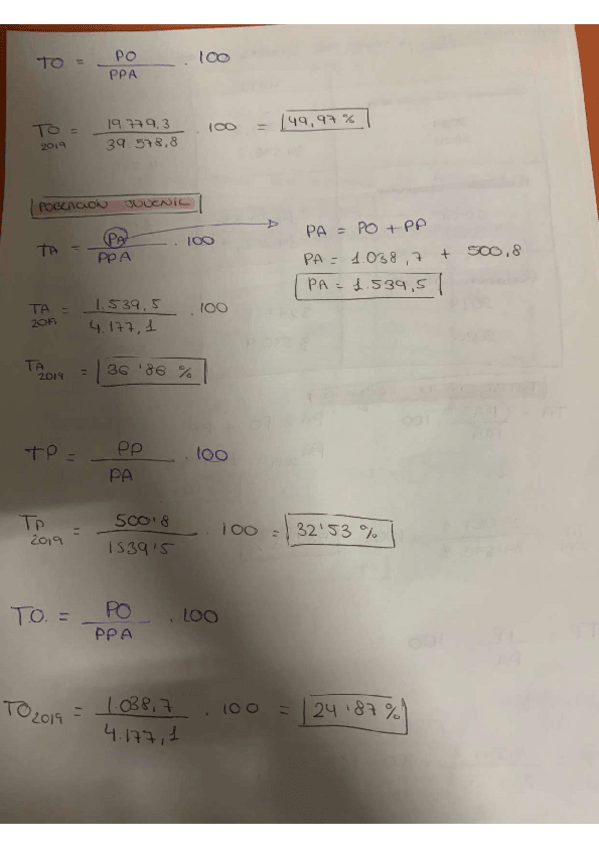 TO = PO / PPA . 100
TO 2019 = 19.779,3 / 39.578,8 . 100 = 49,97 %
POBLACION JUVENIL
TA = PA / PPA . 100
PA = PO + PP
PA = 1038,7 + 500,8
PA = 1.539,5
TA 2019 = 1.539,5 / 4.177,1 . 100
TA 2019 = 36'86 %
TP = PP / PA . 100
TP 2019 = 500'8 / 1539'5 . 100 = 32'53 %
T.O. = PO / PPA . 100
TO 2019 = 1.038,7 / 4.177,1 . 100 = 24'87 %